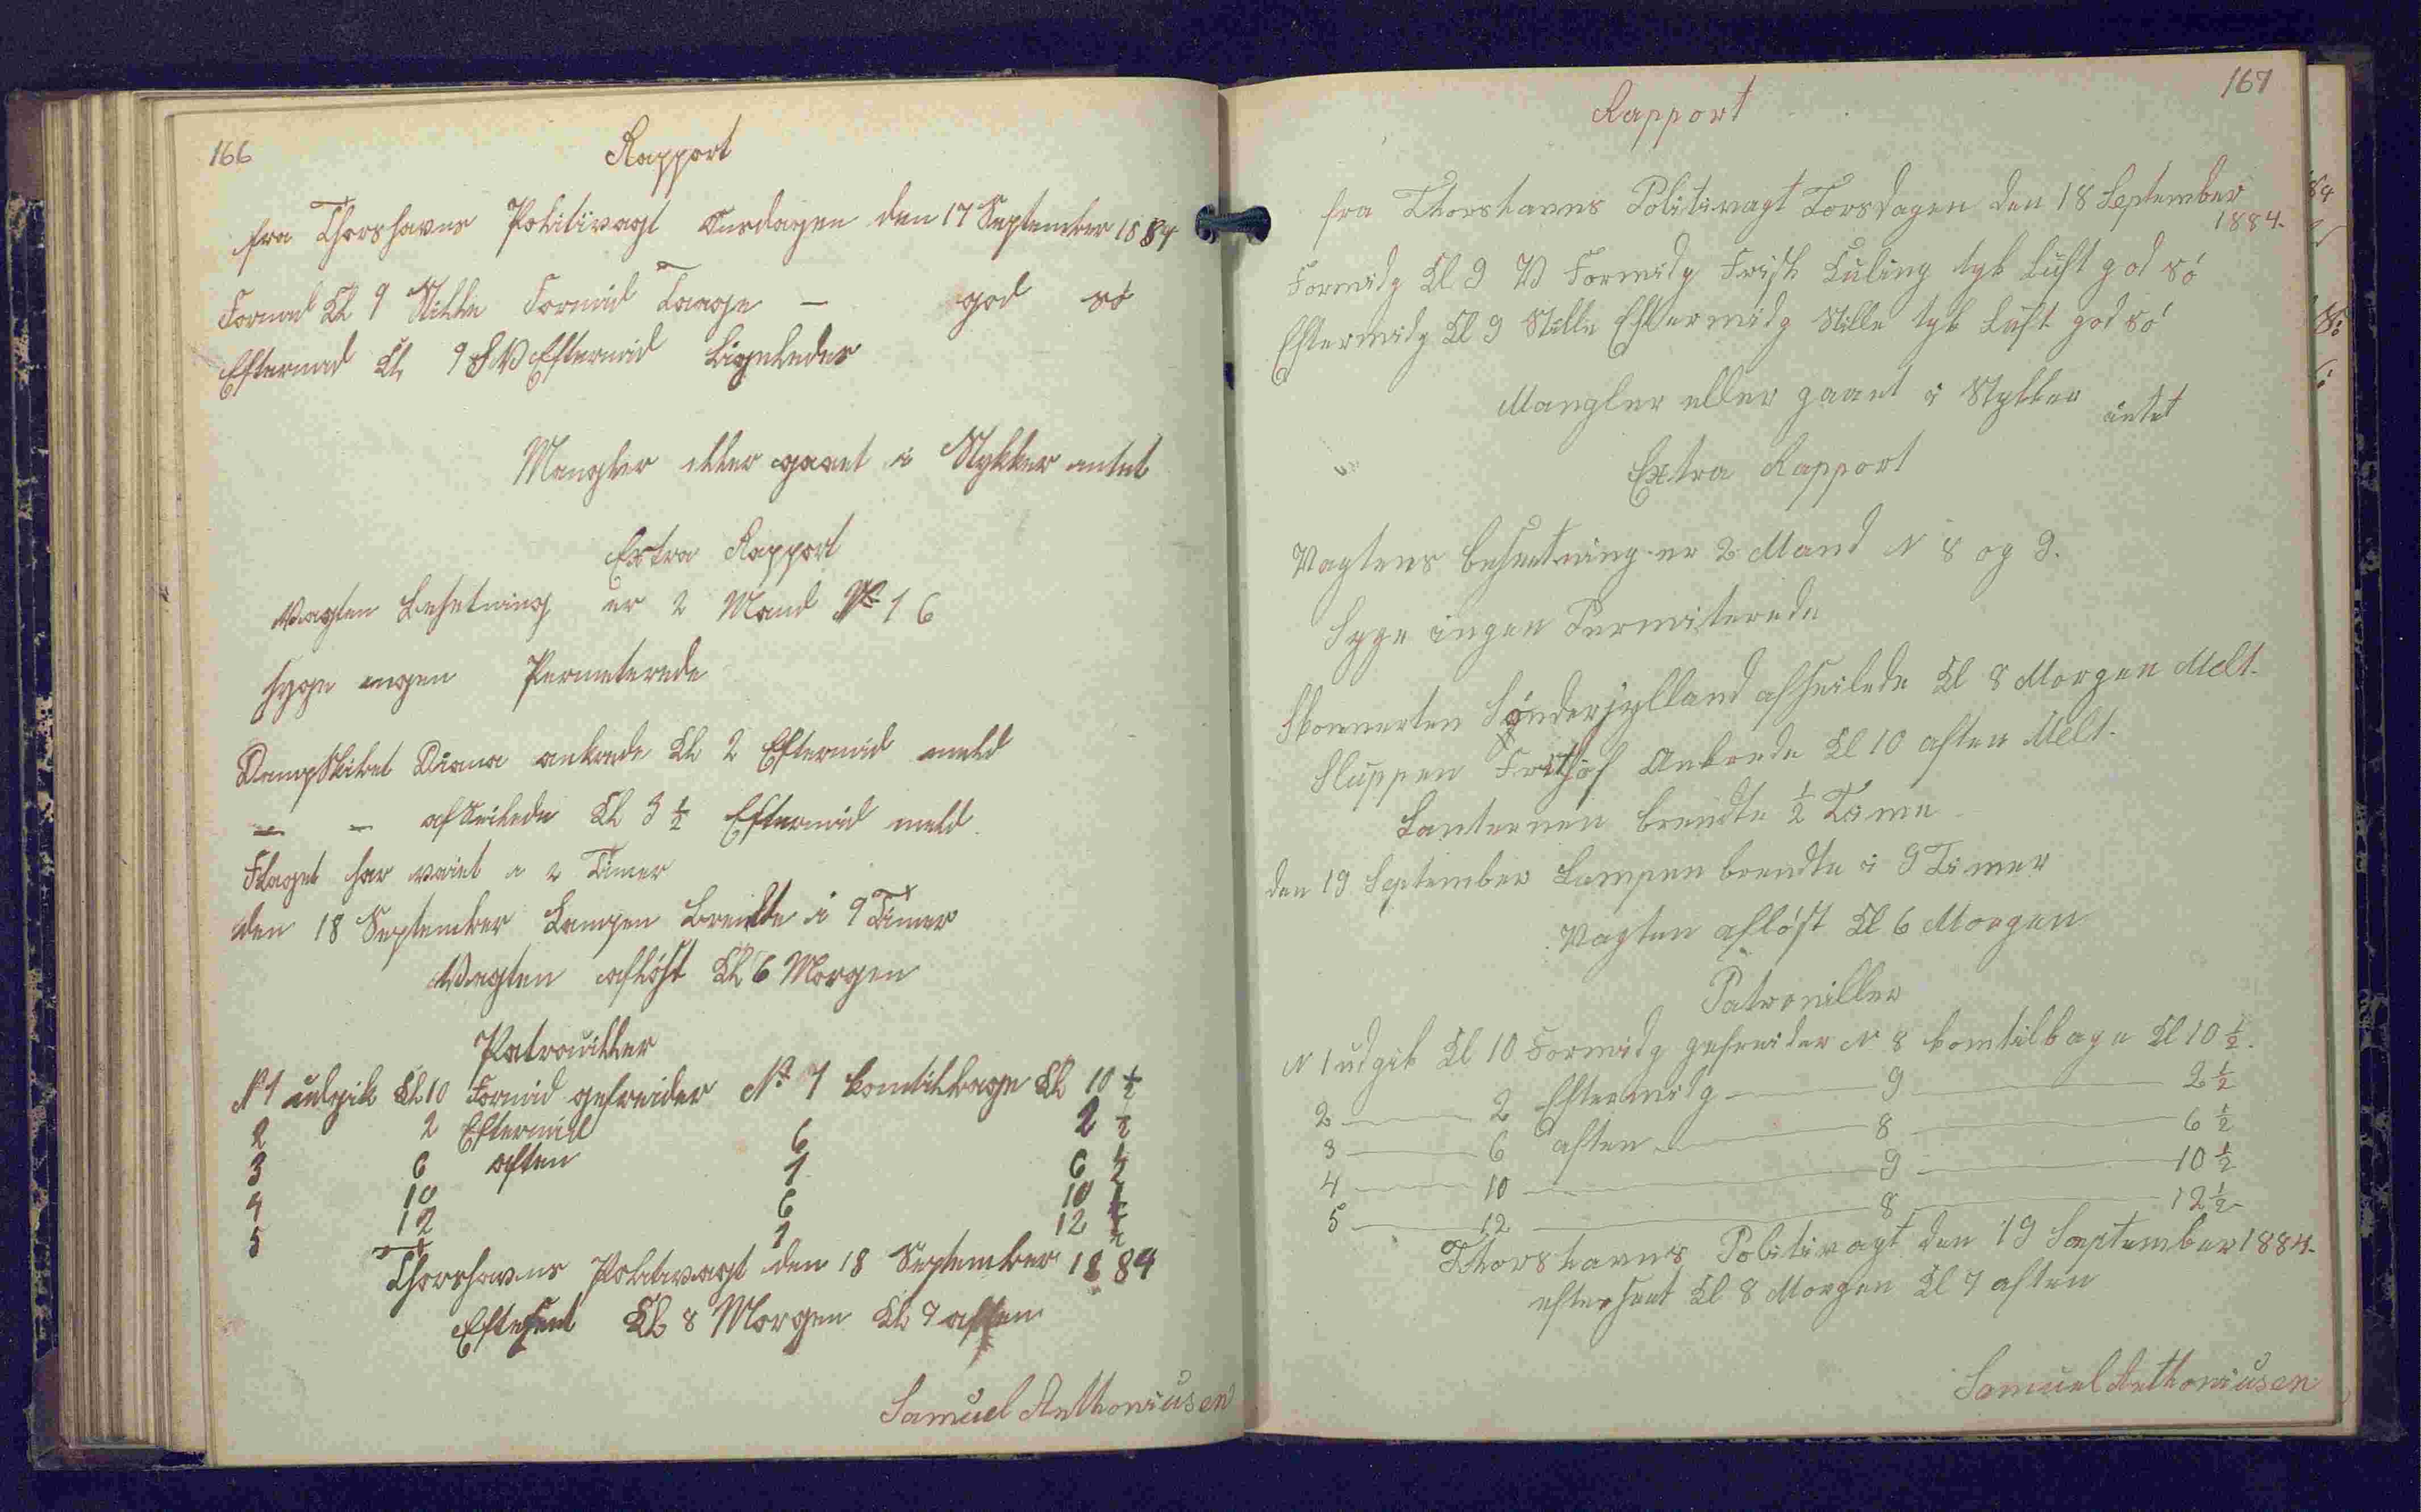 166
Rapport
fra Thorshavns Politivagt Onsdagen den 17 September 1884
Formid Kl 9 Stille Formid Taage — god sö
Eftermid Kl. 9 SV Eftermid Ligeledes
Mangler eller gaaet i Stykker intet
Extra Rapport
Vagten Besetning er 2 Mand No 1 6
Syge ingen Permeterede
Dampskibet Diana ankrede Kl 2 Eftermid meld
— — afseilede Kl 3 ½ Eftermid meld.
Flaget har vaiet i 2 Timer
den 18 September Lampen Brendte i 9 Timer
Vagten aflöst Kl 6 Morgen
Patrouiller
N 1 udgik Kl 10 Formid gefreider No 1 komtilbage Kl 10 ½
2 2 Eftermid 6 2 ½
3 6 aften 1 6 ½
4 10 6 10 ½
5 12 1 12 ½
Thorshavns Politivagt den 18 September 1884
Efteset Kl 8 Morgen Kl 7 aften
Samuel Anthoniusen
167
Rapport
fra Thorshavns Politivagt Torsdagen den 18 September
1884.
Formidg Kl 9 V Formidg Frisk Kuling tyk Luft god sö
Eftermidg Kl 9 Stille Eftermidg Stille tyk Luft god sö
Mangler eller gaaet i Stykker intet
Extra Rapport
Vagtens besætning er 2 Mand N 8 og 9.
Syge ingen Permiterede
Skonnerten Sønderjylland afseilede Kl 8 Morgen Melt.
Sluppen Frithjof Ankrede Kl 10 aften Melt.
Lanternen brendte ½ Time
den 19 September Lampen brendte i 9 Timer
Vagten aflöst Kl 6 Morgen
Patroniller
N 1 udgik Kl 10 Formidg gefreider N 8 komtilbage Kl 10 ½.
2 — 2 Eftermidg — 9 — 2 ½
3 — 6 aften — 8 — 6 ½
4 — 10 — 9 — 10 ½
5 — 12 — 8 — 12 ½
Thorshavns Politivagt den 19 September 1884.
efterseet Kl 8 Morgen Kl 7 aften
Samuel Anthoniusen